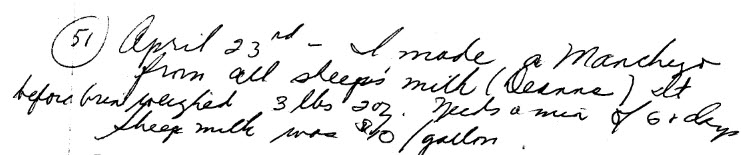 (51) April 23rd - I made a Manchego
from all sheep's milk (Deanna) It
before brin weighed 3 lbs 2oz. Needs a min of 60 days
Sheep milk was $10/gallon.